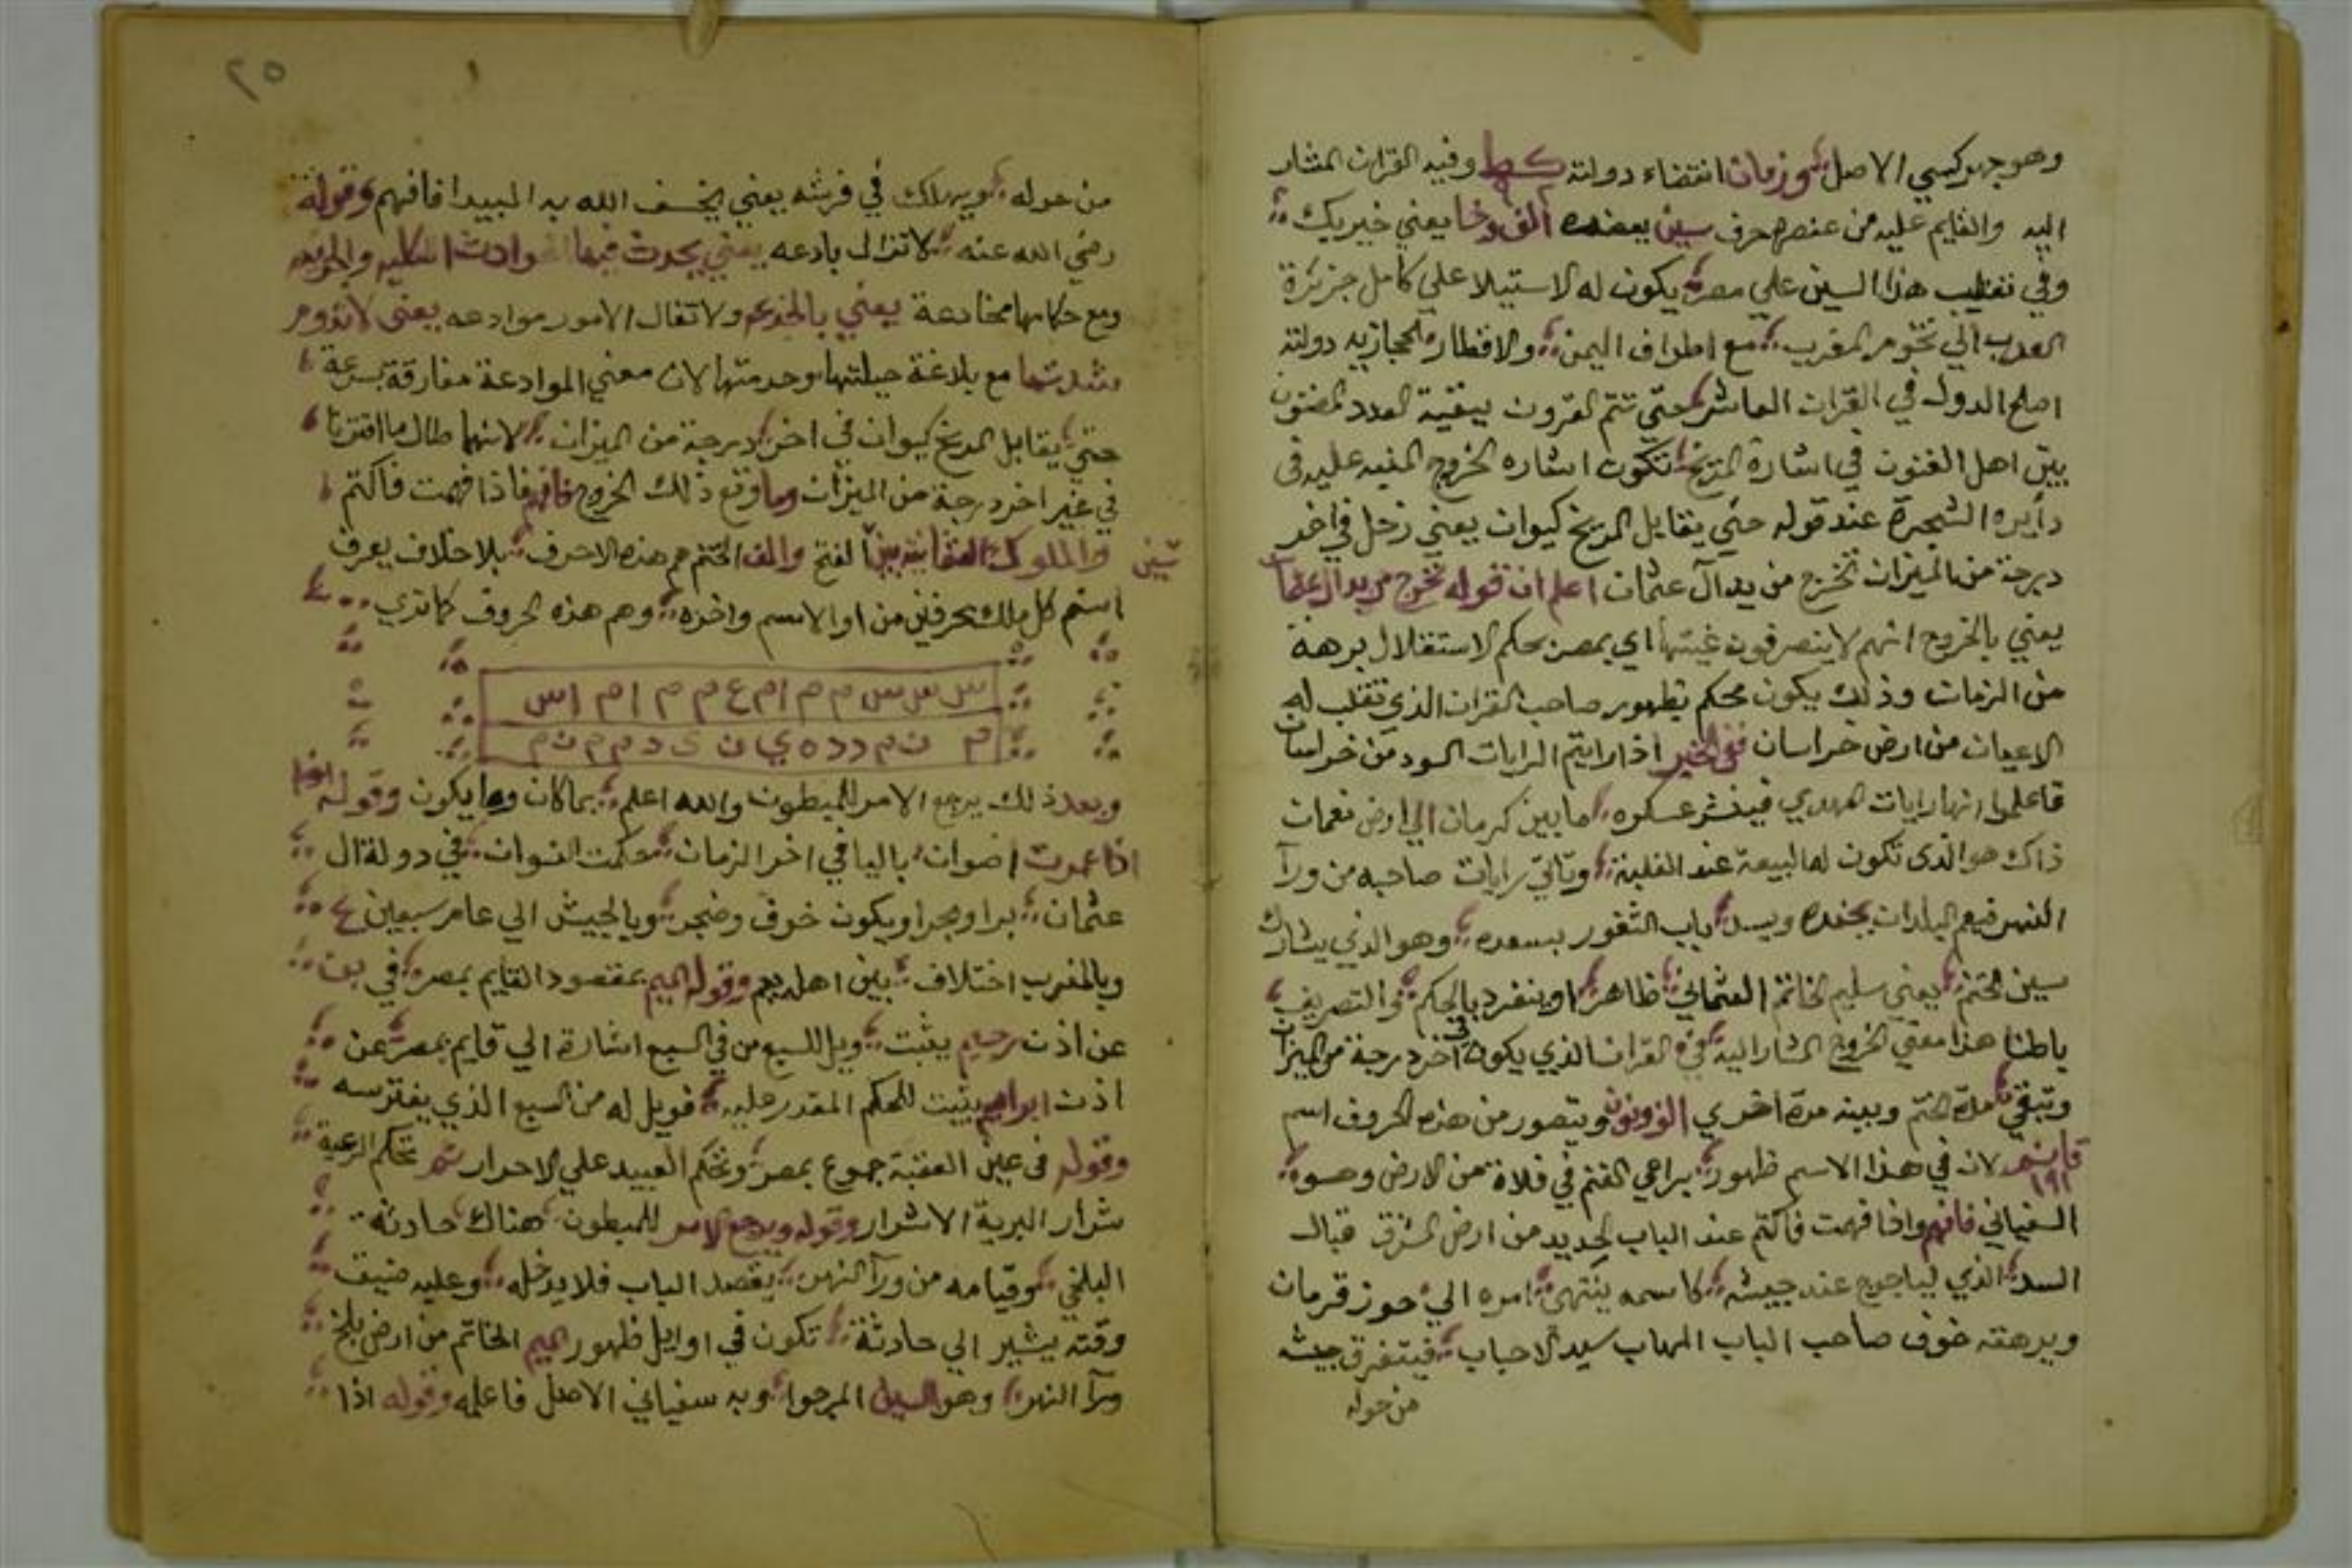 وهو جهركسي الاصل وزمان انتضاء دولته كط وفيه القران المشار
اليه والقايم عليه من عنصره حرف سين يعضده الف وخا يعني خيربك
وفي تغلب هذا السين علي مصر يكون له الاستيلا علي كامل جزيرة
العرب الي تخوم المغرب مع اطراف اليمن والاقطار الحجازيه دولته
اصلح الدول في القران العاشر حتي تتم القرون ببقية العدد المضنون
بين اهل الفنون في اشارة المريخ تكون اشاره الخروج المنبه عليه في
دأيره الشجرة عند قوله حتي يقابل المريخ كيوان يعني زحل في اخر
درجة من الميزان تخرج من يد آل عثمان اعلم ان قوله تخرج من يد ال عثمان
يعني بالخروج انهم لا ينصرفون اي بمصر بحكم الاستقلال برهة
من الزمان وذلك يكون محكم بظهور صاحب القران الذي تقلب له
الاعيان من ارض خراسان ففي الخبر اذا رايتم الرايات السود من خراسان
فاعلموا انها رايات المهدي فينشر عسكره ما بين كرمان الي ارض نعمان
ذاك هو الذى تكون له البيعة عند الغلبة وتاتي رايات صاحبه من ورآ
النهر فيعم البلدان بجنده ويسد باب الثغور بسعده وهو الذي يشارك
سين الختم يعني سليم الخاتم العثماني ظاهرا وينفرد بالحكم في التصريف
باطنا هذا معني الخروج المشار اليه في القران الذي يكون في اخر درجة من الميزان
وتبقي مدة الختم وبينه مدة اخري ويتصور من هذه الحروف اسم
١٩١ لان في هذا الاسم ظهور براعي الغنم في فلاة من الارض وهو
السفياني فافهم واذا فهمت فاكتم عند الباب الجديد من ارض المشرق قبال
السد الذي لياجوج عند جيشه كاسمه ينتهي امره الي حوز قرمان
ويرهقه خوف صاحب الباب المهاب سيد الاحباب فيتفرق جيشه
من حوله
٢٥
من حوله ويهلك في فرشه يعني يخسف الله به البيدا فافهم وقوله
رضي الله عنه لا تزال بادعه يعني يحدث فيها الحوادث الكليه والجزئيه
ومع حكامها مخادعة يعني بالخدع ولا تقال الامور موادعه يعني لا تدوم
شدتها مع بلاغة حيلتها وحدمتها لان معني الموادعة مفارقة بسرعة
حتي يقابل المريخ كيوان في اخر درجة من الميزان لانهما طال ما اقترنا
في غير اخر درجة من الميزان وما وقع ذلك الخروج فافهم فاذا فهمت فاكتم
سين والملوك العثمانيه بين الفتح والف الختم هم هذه الاحرف بلا خلاف يعرف
اسم كل ملك بحرفين من او الاسم واخره وهم هذه الحروف كما تري
س س س س م م ام ع م م ا م اس
م ن م د د ه ي ا ن ى د م م ن م
وبعد ذلك يرجع الامر للمبطون والله اعلم بما كان وما يكون وقوله ايضا
اذا عمرت اضوان باليا في اخر الزمان حكمت النسوان في دولة ال
عثمان برا وبحرا ويكون خوف وضجر وبالجيش الي عام سبعين
وبالمغرب اختلاف بين اهله وقوله الميم بمقصود القايم بمصر في
عن اذن رحيم يثبت ويل للسبع من في السبع اشارة الي قايم بمصر عن
اذن ابراهيم يثبت للحكم المقدر عليه فويل له من السبع الذي يفترسه
وقوله في عين العقبة جموع بمصر وتحكم العبيد علي الاحرار ثم تحكم الرعية
شرار البرية الاشرار وقوله ويرجع الامر للمبطون هناك حادثة
البلخي وقيامه من ورآ النهر يقصد الباب فلا يدخله وعليه ضيق
وقته يشير الي حادثة تكون في اوايل ظهور الميم الخاتم من ارض بلخ
ورآ النهر وهو السين المرجوا وبه سفياني الاصل فاعلمه وقوله اذا